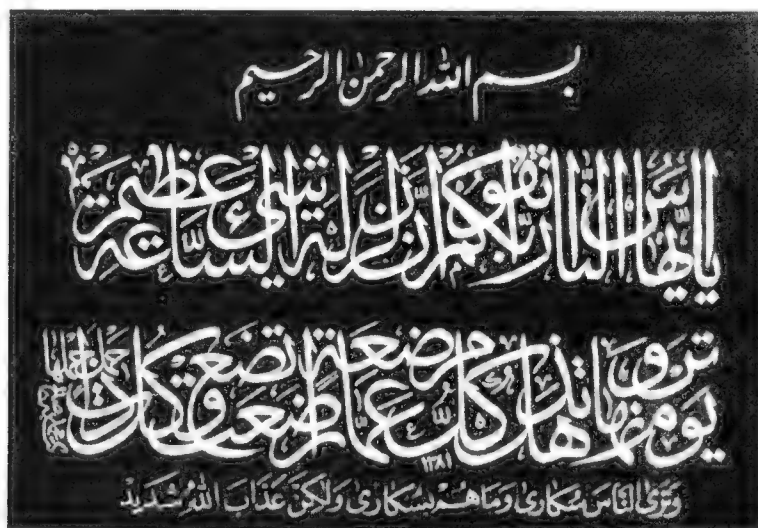 بسم الله الرحمن الرحيم
يا أيها الناس اتقوا ربكم إن زلزلة الساعة شيئ عظيم
يوم ترونها تذهل كل مرضعة عما أرضعت وتضع كل ذات حمل حملها
١٣٨١
وَتَرَى النَّاسَ سُكَارَى وَمَا هُمْ بِسُكَارَى وَلَكِنَّ عَذَابَ اللهِ شَدِيدٌ